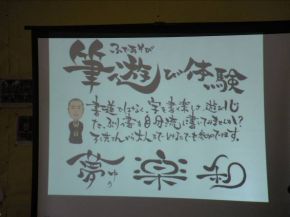 ふであそび
筆遊び体験
書道ではなく、字を書楽しく、遊び心
た、ぷり書を自分流に書いてみませんか？
子供さんから大人までどなたでも参加できます。
夢
ゆめ
楽
和